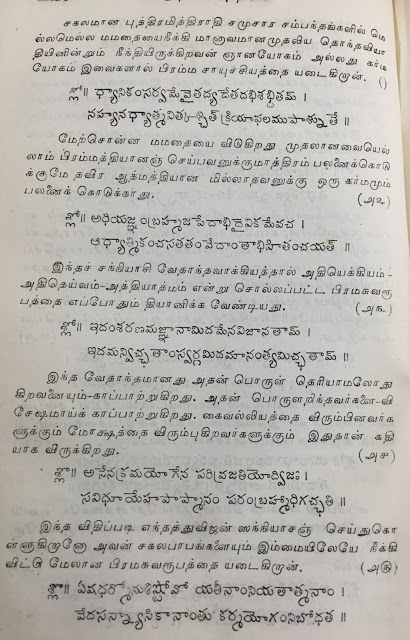 சகலமான புத்திரமித்திராதி சமுசார சம்பந்தங்களில் மெ
ல்லமெல்ல மமதையைநீக்கி மானாவமானமுதலிய தொந்தவியா
தியினின்றும் நீந்தியிருக்கிறவன் ஞானயோகம் அல்லது கர்ம
யோகம் இவைகளால் பிரம்ம சாயுச்சியத்தை யடைகிறான். ()
శ్లో॥ ధ్యానికంసర్వమేవైతద్యదేతదభిశబ్దితమ్ ।
నహ్యనధ్యాత్మవిత్కశ్చిత్ క్రియాఫలముపాశ్నుతే ॥
மேற்சொன்ன மமதையை விடுகிறது முதலானவையெல்
லாம் பிரம்மத்தியானஞ் செய்பவனுக்குமாத்திரம் பலனைக்கொடு
க்குமே தவிர ஆத்மத்தியான மில்லாதவனுக்கு ஒரு கர்மமும்
பலனைக் கொடுக்காது. (அ௨)
శ్లో॥ అధియజ్ఞంబ్రహ్మజపేదాభిదైవికమేవచ ।
ఆధ్యాత్మికంచసతతంవేదాంతాభిహితంచయత్ ॥
இந்தச் சந்நியாசி வேதாந்தவாக்கியத்தால் அதியெக்கியம்-
அதிதெய்வம்-அத்தியாத்மம் என்று சொல்லப்பட்ட பிரமசுவரூ
பத்தை எப்போதும் தியானிக்க வேண்டியது. (அ௩)
శ్లో॥ ఇదంశరణమజ్ఞానామిదమేవవిజానతామ్ ।
ఇదమన్విచ్ఛతాంస్వర్గమిదమానంత్యమిచ్ఛతామ్ ॥
இந்த வேதாந்தமானது அதன் பொருள் தெரியாமலோது
கிறவனையும்-காப்பாற்றுகிறது. அதன் பொருளறிந்தவர்களை-வி
சேஷமாய்க் காப்பாற்றுகிறது. கைவல்லியத்தை விரும்பினவர்க
ளுக்கும் மோக்ஷத்தை விரும்புகிறவர்களுக்கும் இதுதான் கதி
யாக விருக்கிறது. (அ௪)
శ్లో॥ అనేనక్రమయోగేన పరివ్రజతియోద్విజః ।
సవిధూయేహపాప్మానం పరంబ్రహ్మాధిగచ్ఛతి ॥
இந்த விதிப்படி எந்தத்துவிஜன் ஸந்நியாசஞ் செய்துகொ
ள்ளுகிறானோ அவன் சகலபாபங்களையும் இம்மையிலேயே நீக்கி
விட்டு மேலான பிரமசுவரூபத்தை யடைகிறான். (அ௫)
శ్లో॥ ఏషధర్మోనుశిష్టోవో యతీనాంనియతాత్మనాం ।
వేదసన్న్యాసికానాంతు కర్మయోగంనిబోధత ॥